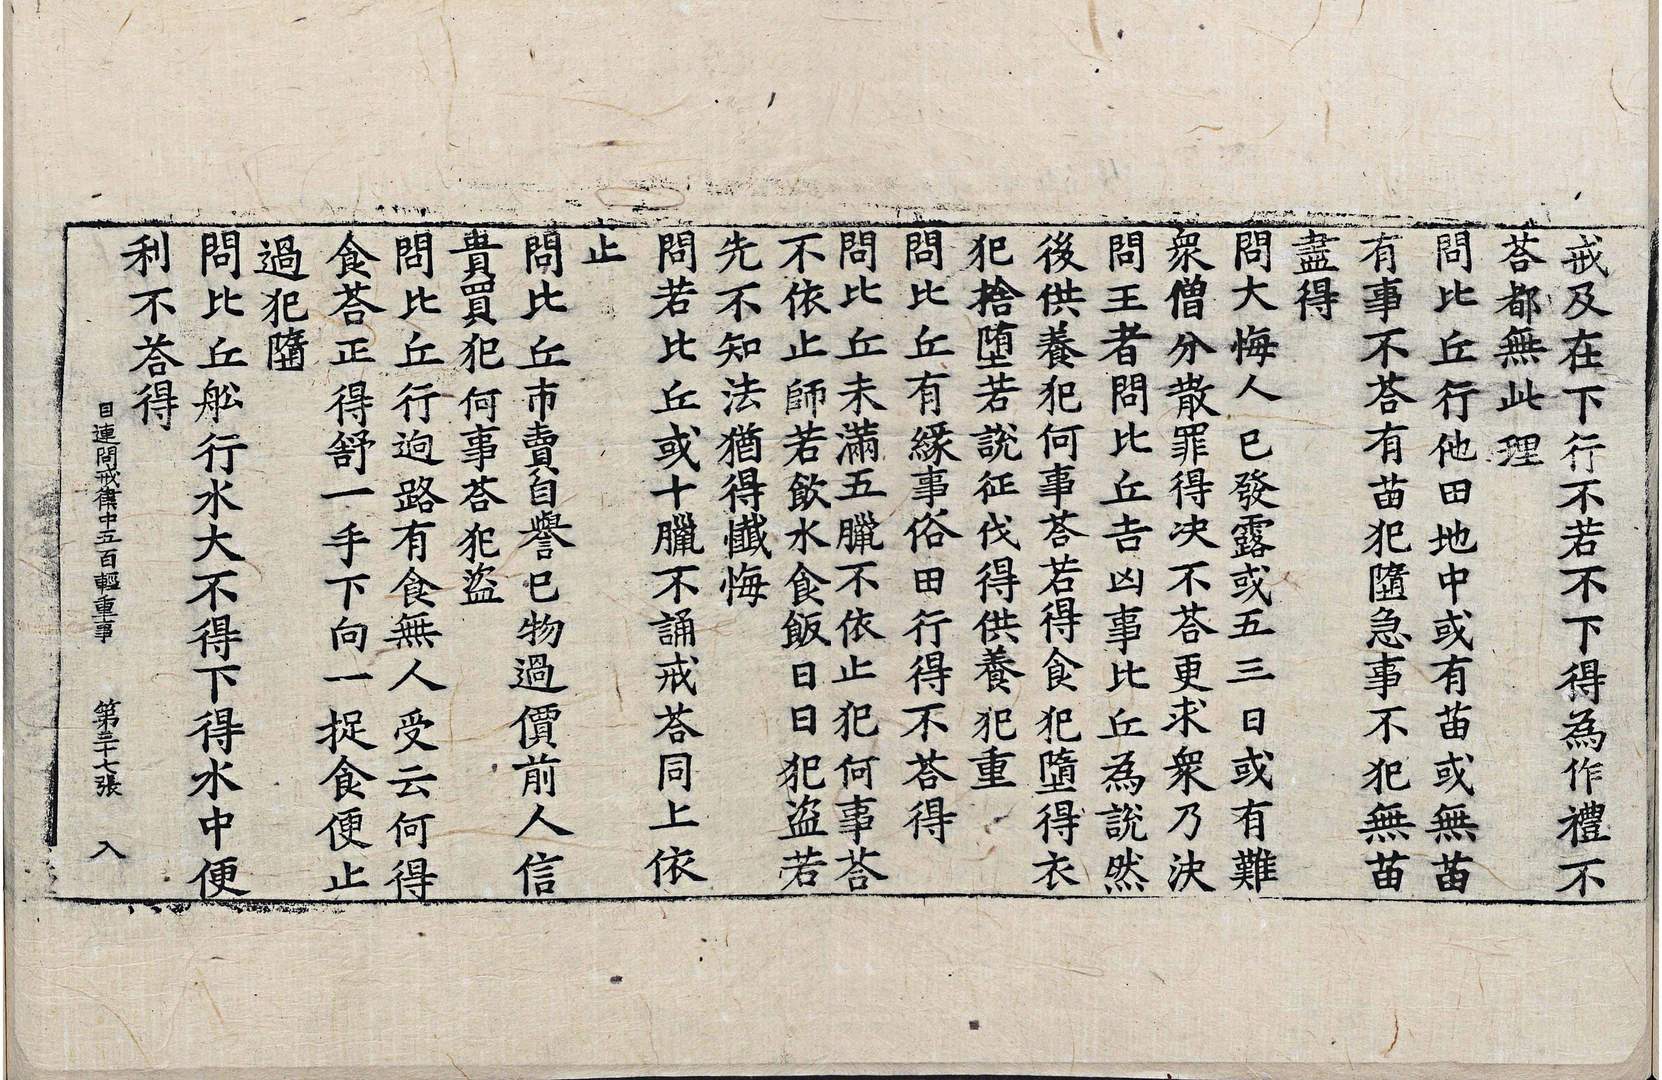 戒及在下行不若不下得為作禮不
荅都無此理
問比丘行他田地中或有苗或無苗
有事不荅有苗犯墮急事不犯無苗
盡得
問大悔人已發露或五三日或有難
衆僧分散罪得决不荅更求衆乃決
問王者問比丘吉凶事比丘為說然
後供養犯何事荅若得食犯墮得衣
犯捨墮若說征伐得供養犯重
問比丘有緣事俗田行得不荅得
問比丘未滿五臘不依止犯何事荅
不依止師若飲水食飯日日犯盜若
先不知法猶得懺悔
問若比丘或十臘不誦戒荅同上依
止
問比丘市賣自譽已物過價前人信
貴買犯何事荅犯盜
問比丘行逈路有食無人受云何得
食荅正得舒一手下向一捉食便止
過犯墮
問比丘舩行水大不得下得水中便
利不荅得
目連問戒律中五百輕重事 第三十七張 入